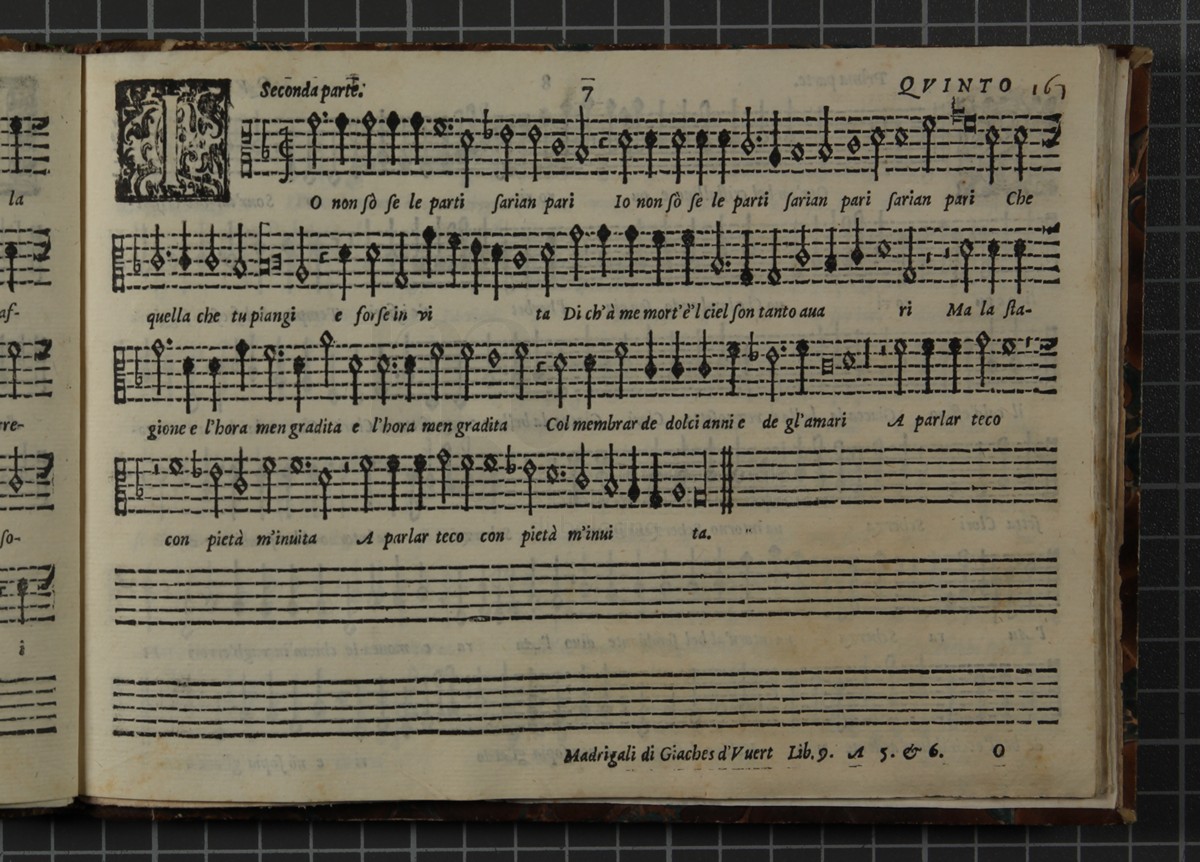 Seconda parte. 7 QVINTO 167
IO non sò se le parti sarian pari Io non sò se le parti sarian pari sarian pari Che
quella che tu piangi e forse in vi ta Di ch'à me mort'è'l ciel son tanto aua ri Ma la sta-
gione e l'hora men gradita e l'hora men gradita Col membrar de dolci anni e de gl'amari A parlar teco
con pietà m'inuita A parlar teco con pietà m'inui ta.
Madrigali di Giaches d'Vuert Lib. 9. A 5. & 6. O
la
af-
re-
so-
i